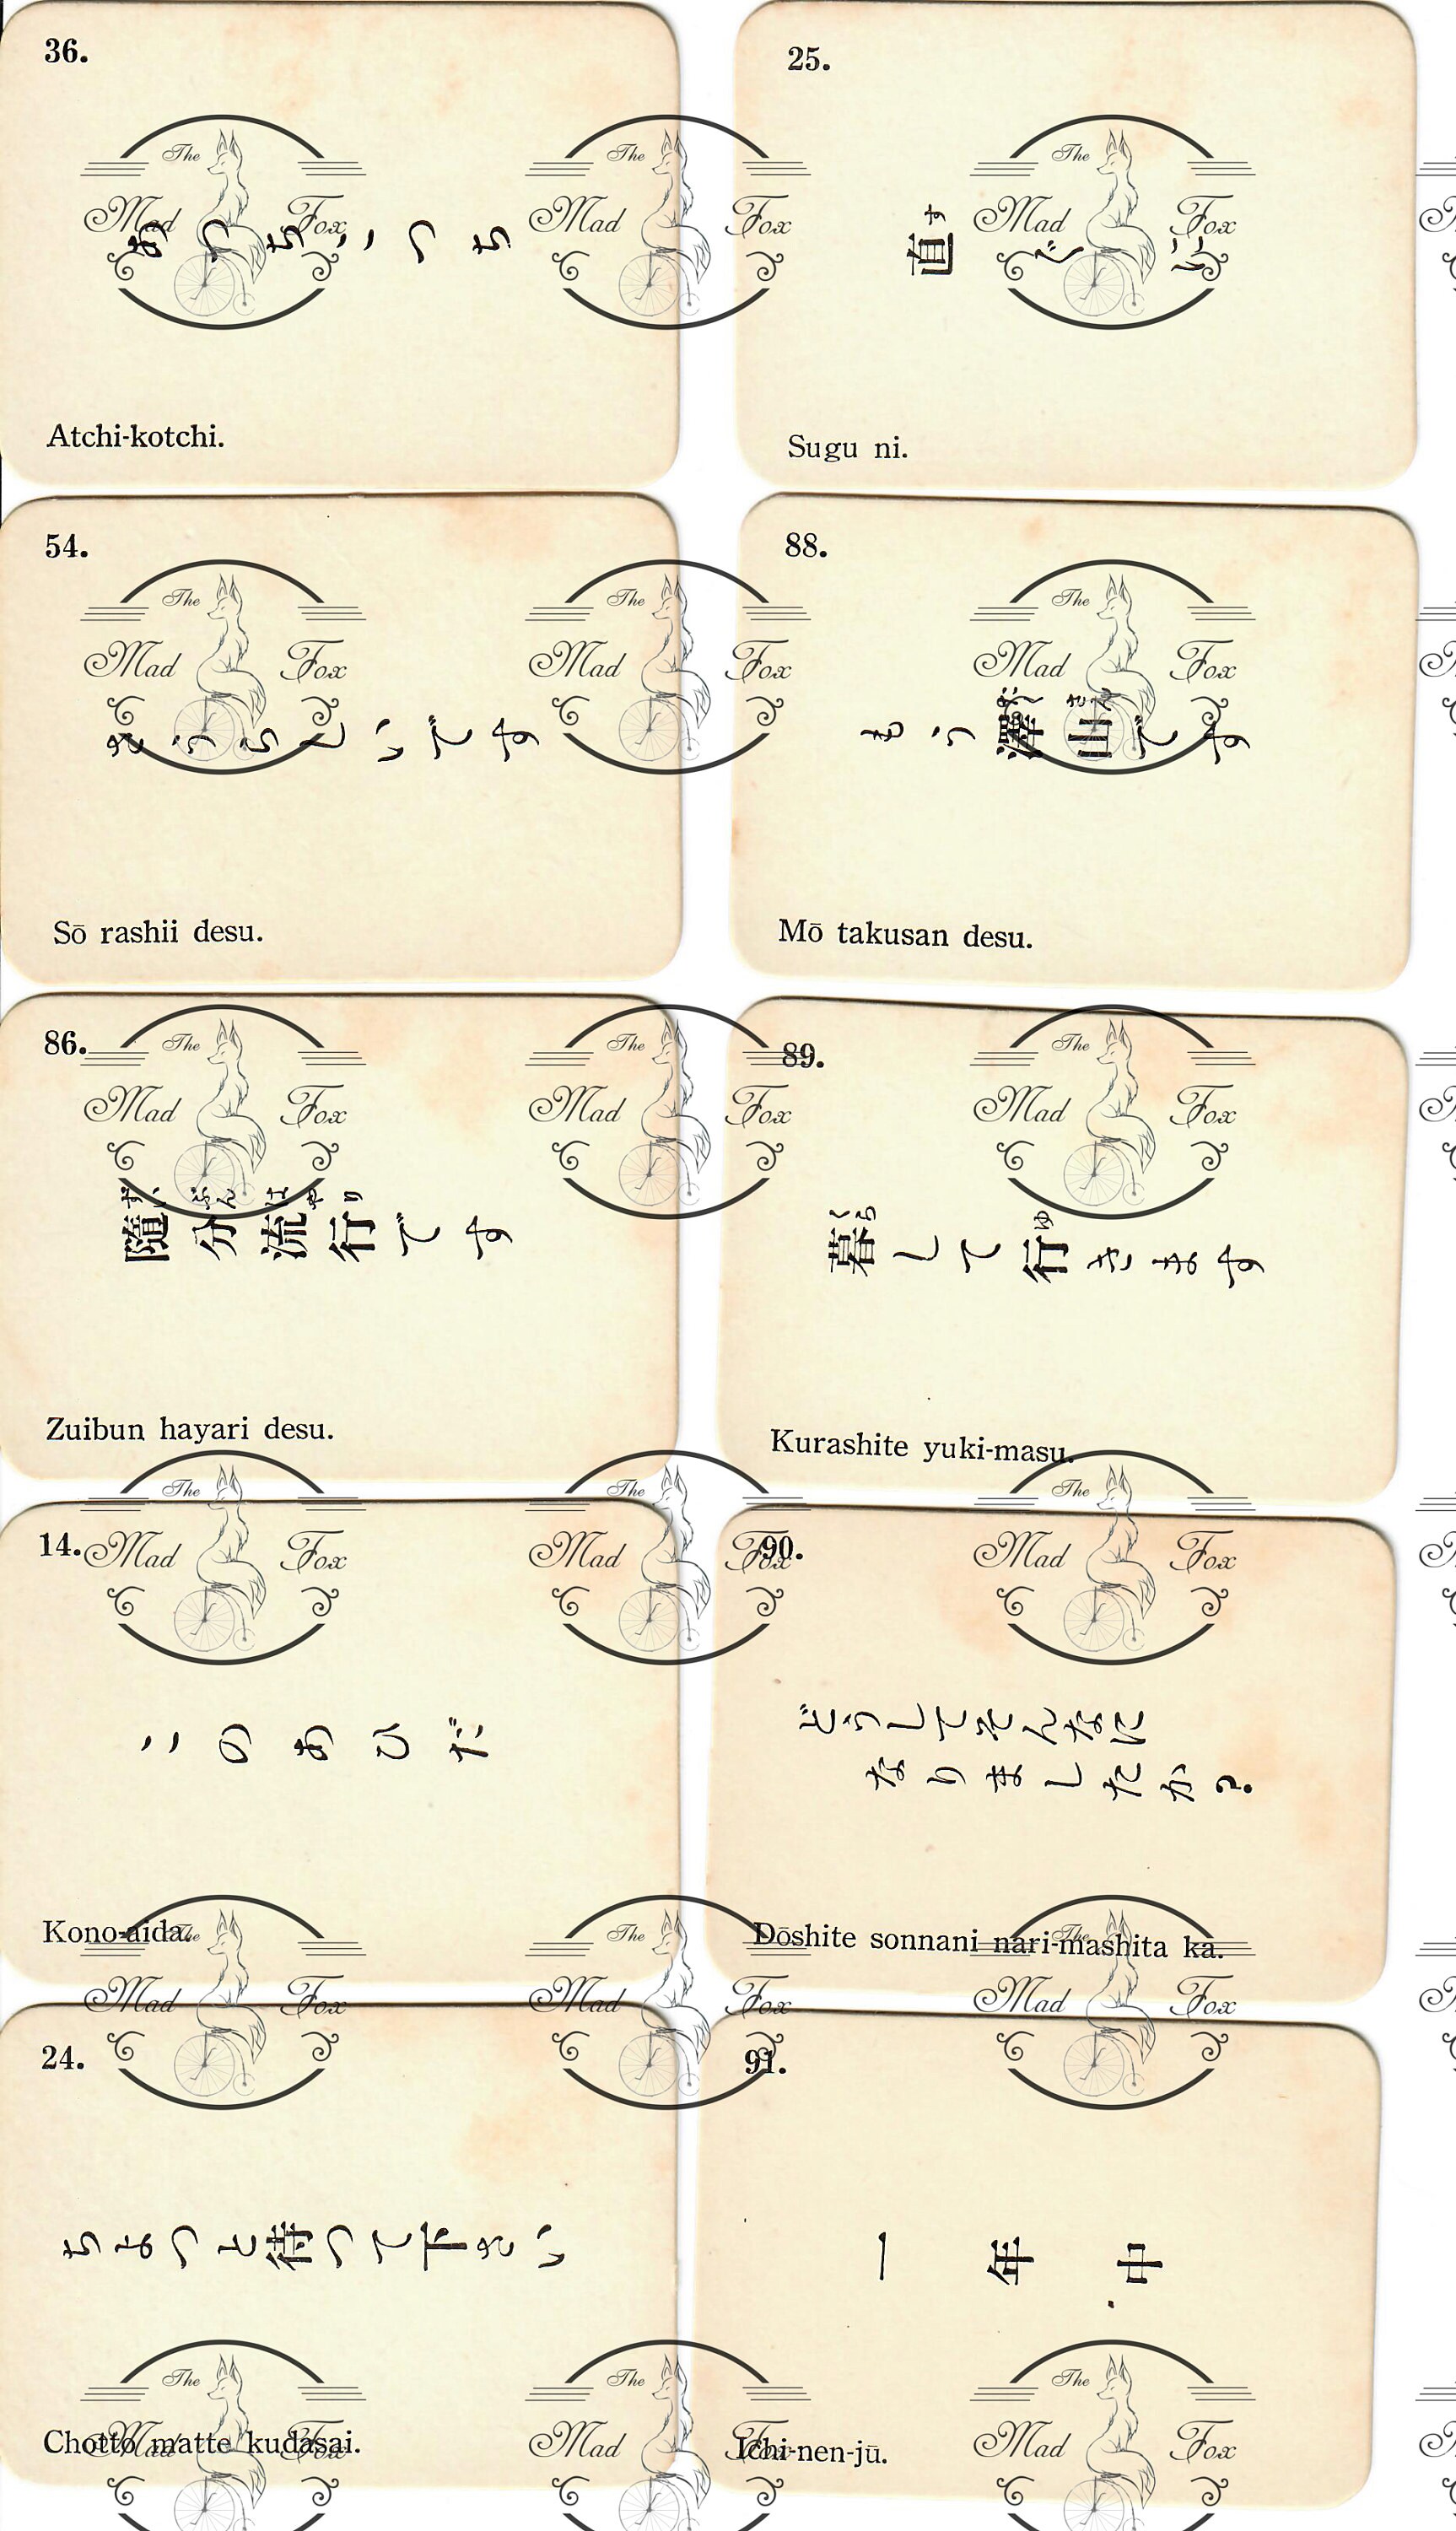 36.
あつちこつち
Atchi-kotchi.
25.
す
直ぐに
Sugu ni.
54.
そうらしいです
Sō rashii desu.
88.
たくさん
もう澤山です
Mō takusan desu.
86.
ずいぶんはやり
隨分流行です
Zuibun hayari desu.
89.
くら ゆ
暮して行きます
Kurashite yuki-masu.
14.
このあひだ
Kono-aida.
90.
どうしてそんなに
なりましたか?
Dōshite sonnani nari-mashita ka.
24.
ちよつと待つて下さい
Chotto matte kudasai.
91.
一年中
Ichi-nen-jū.
The
Mad Fox